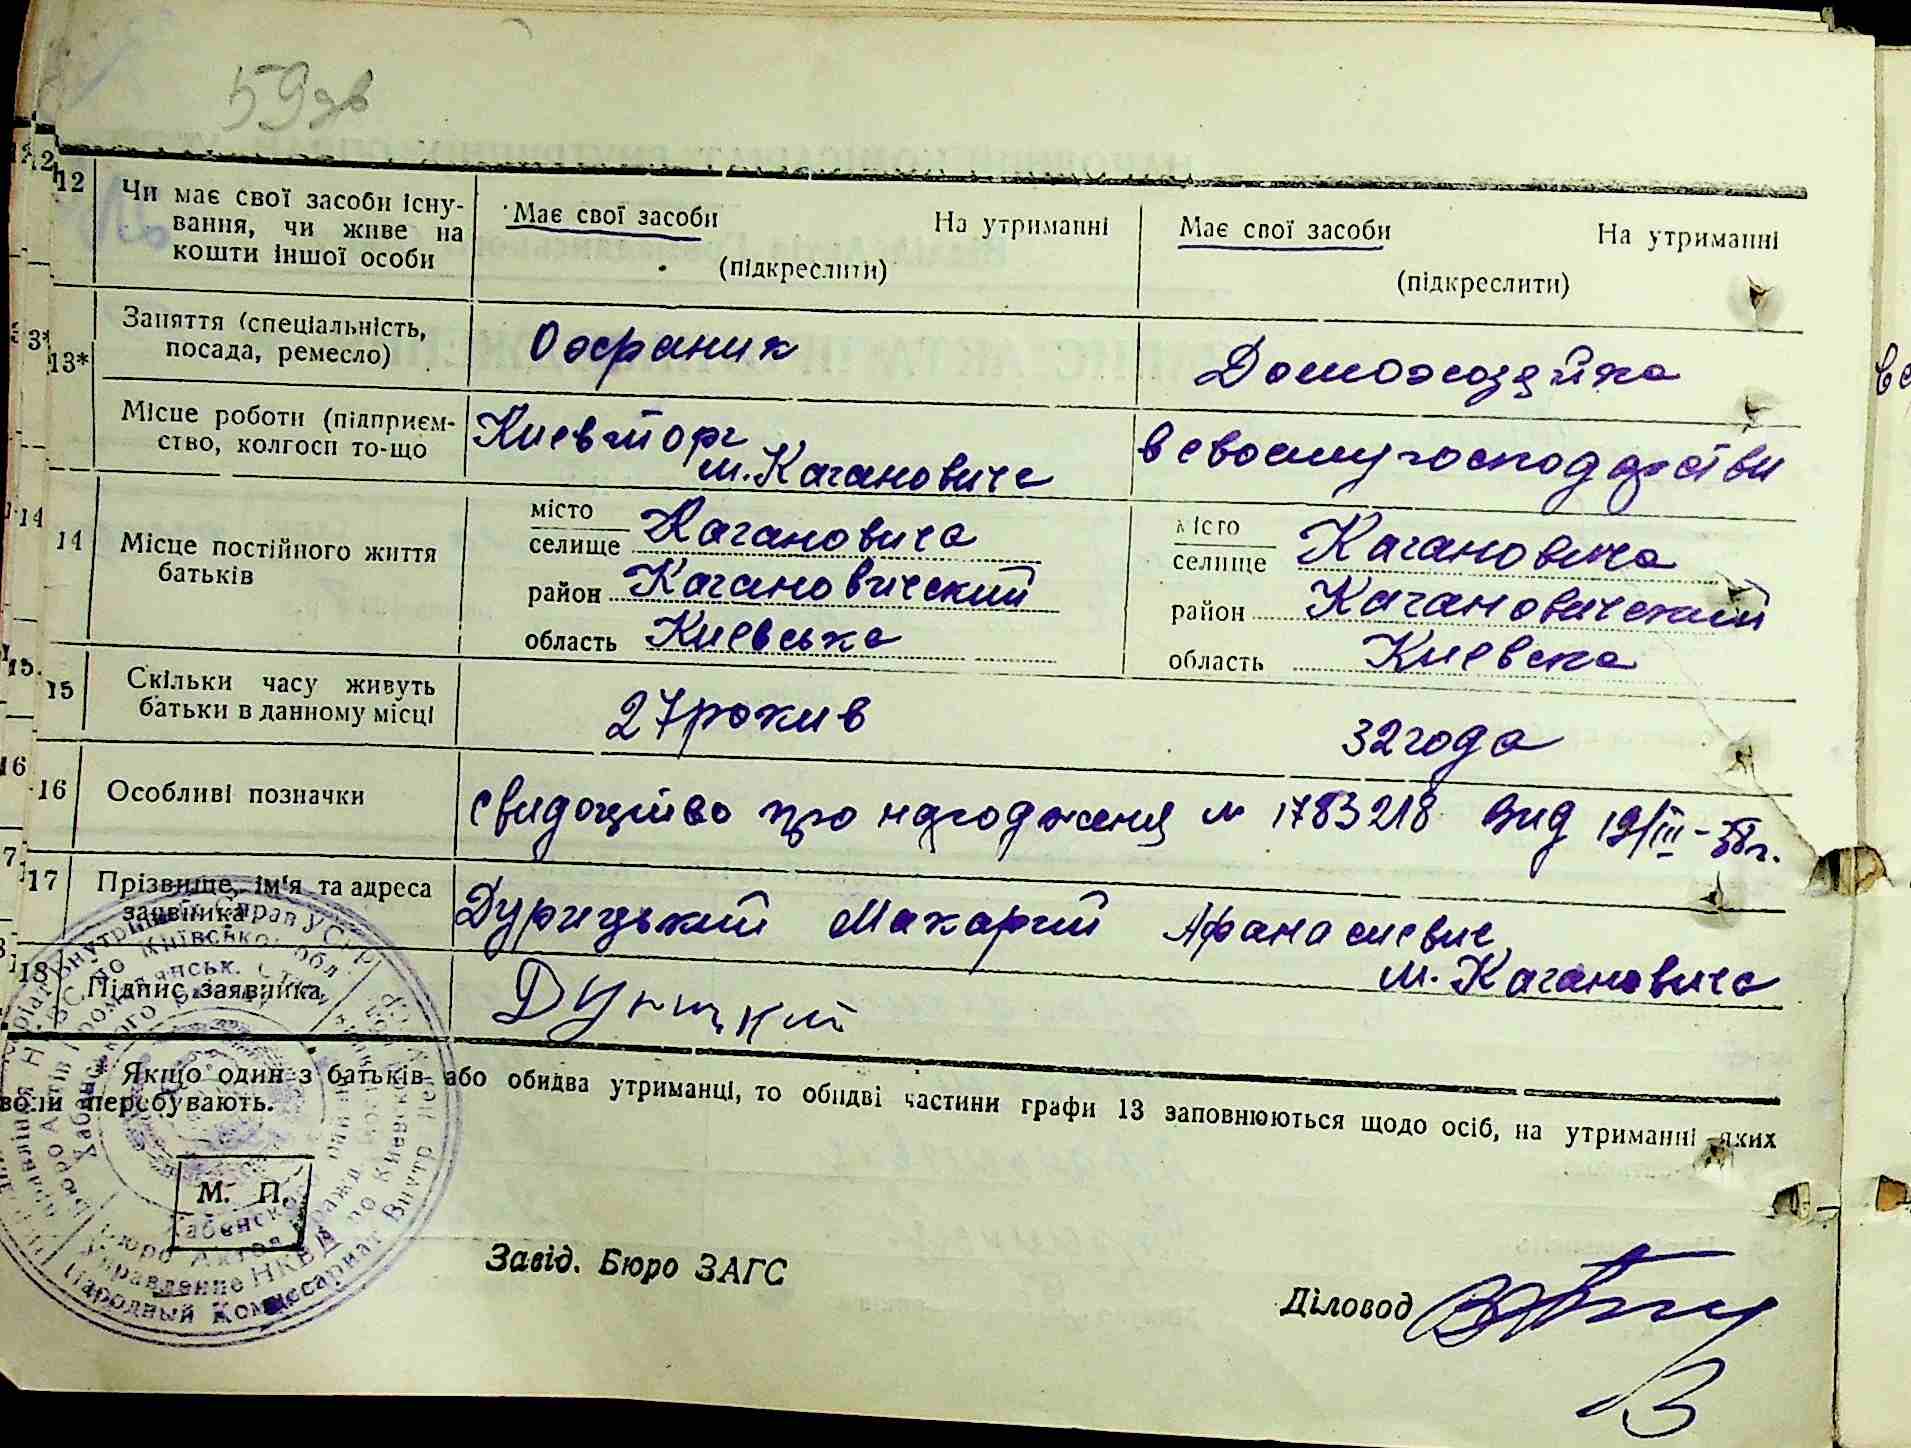 59 зв
12
Чи має свої засоби існу-
вання, чи живе на
кошти іншої особи
Має свої засоби На утриманні
(підкреслити)
Має свої засоби На утриманні
(підкреслити)
13*
Заняття (спеціальність,
посада, ремесло)
Охраник
Домохозяйка
Місце роботи (підприєм-
ство, колгосп то-що
Киевторг
м. Кагановича
в своему господарстви
14
Місце постійного життя
батьків
місто
селище Кагановича
район Кагановический
область Киевська
місто
селище Кагановича
район Кагановический
область Киевска
15
Скільки часу живуть
батьки в данному місці
27 рокив
32 года
16
Особливі позначки
свидоцтво про народження № 1783218 вид 19/III-
17
Прізвище, ім'я та адреса
заявника
Дурицький Макарий Афанасиевич
м. Кагановича
18
Підпис заявника
* Якщо один з батьків або обидва утриманці, то обидві частини графи 13 заповнюються щодо осіб, на утриманні яких
вони перебувають.
М. П.
Завід. Бюро ЗАГС
Діловод
Народный Комиссариат Внутр Дел
Управление НКВД по Киевской
Бюро Актов